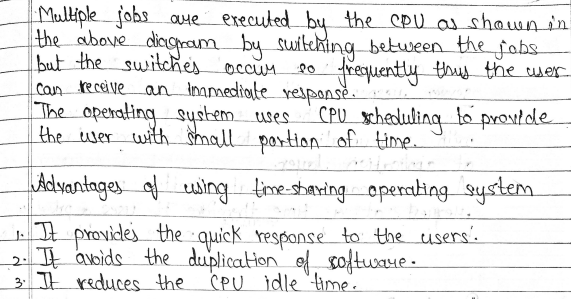 Multiple jobs are executed by the CPU as shown in
the above diagram by switching between the jobs
but the switches occur so frequently thus the user
can receive an immediate response.
The operating system uses CPU scheduling to provide
the user with small portion of time.
Advantages of using time-sharing operating system
1. It provides the quick response to the users.
2. It avoids the duplication of software.
3. It reduces the CPU idle time.